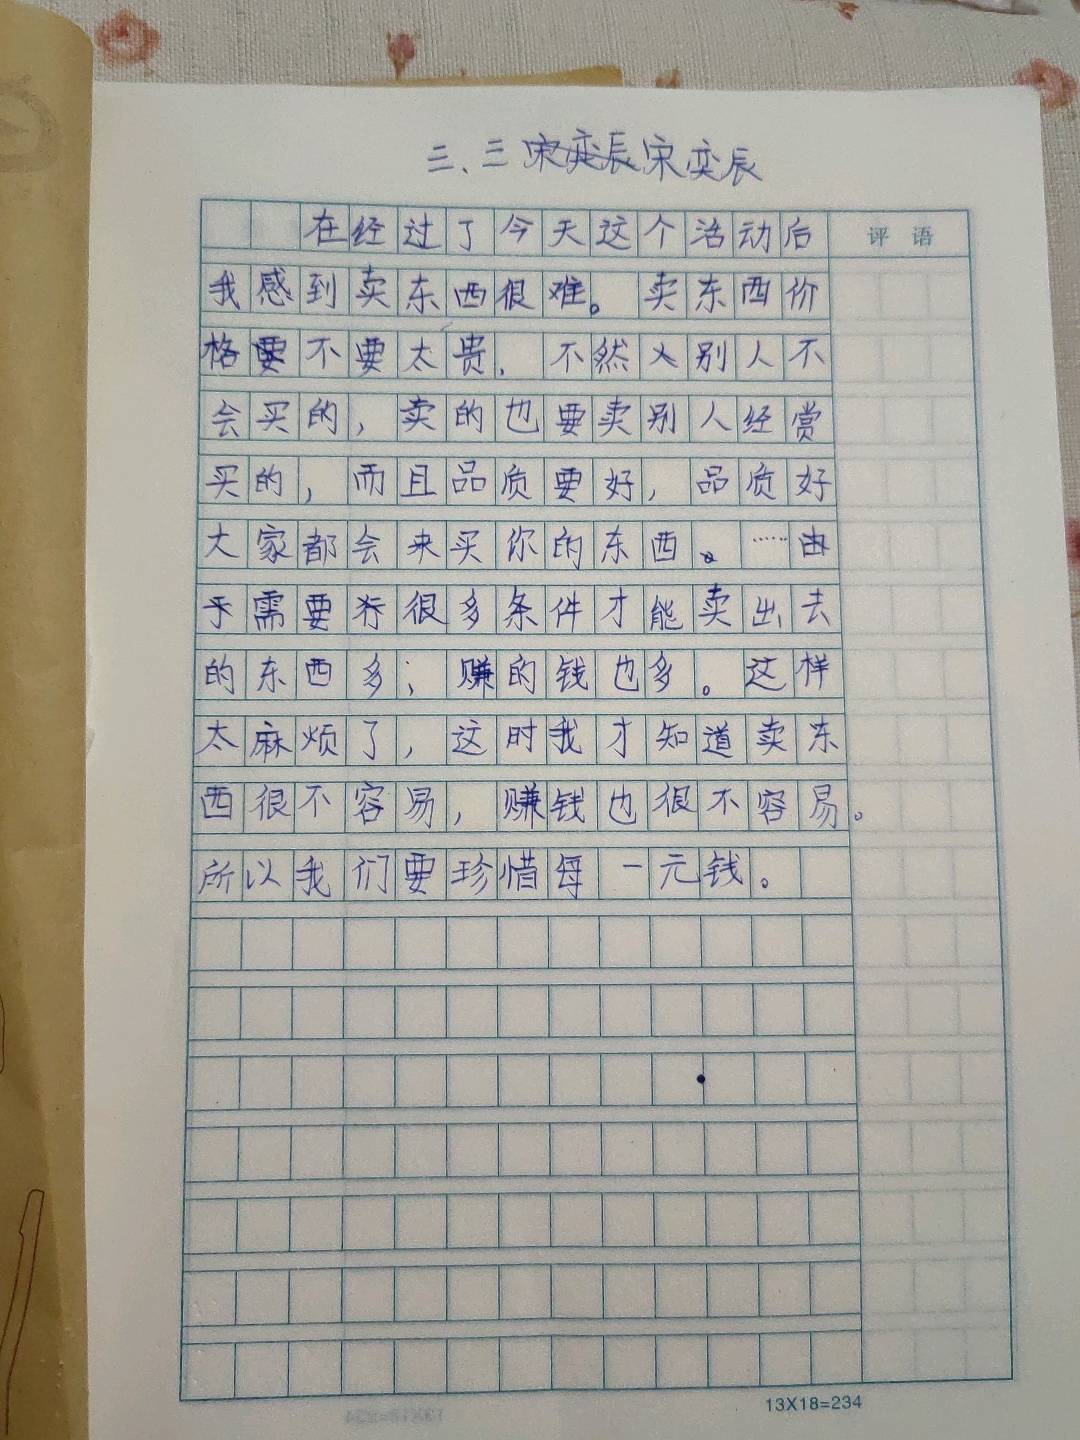 三、三宋奕辰宋奕辰
在经过了今天这个活动后
评 语
我感到卖东西很难。卖东西价
格要不要太贵，不然人别人不
会买的，卖的也要卖别人经赏
买的，而且品质要好，品质好
大家都会来买你的东西。……由
于需要很多条件才能卖出去
的东西多；赚的钱也多。这样
太麻烦了，这时我才知道卖东
西很不容易，赚钱也很不容易。
所以我们要珍惜每一元钱。
13X18=234